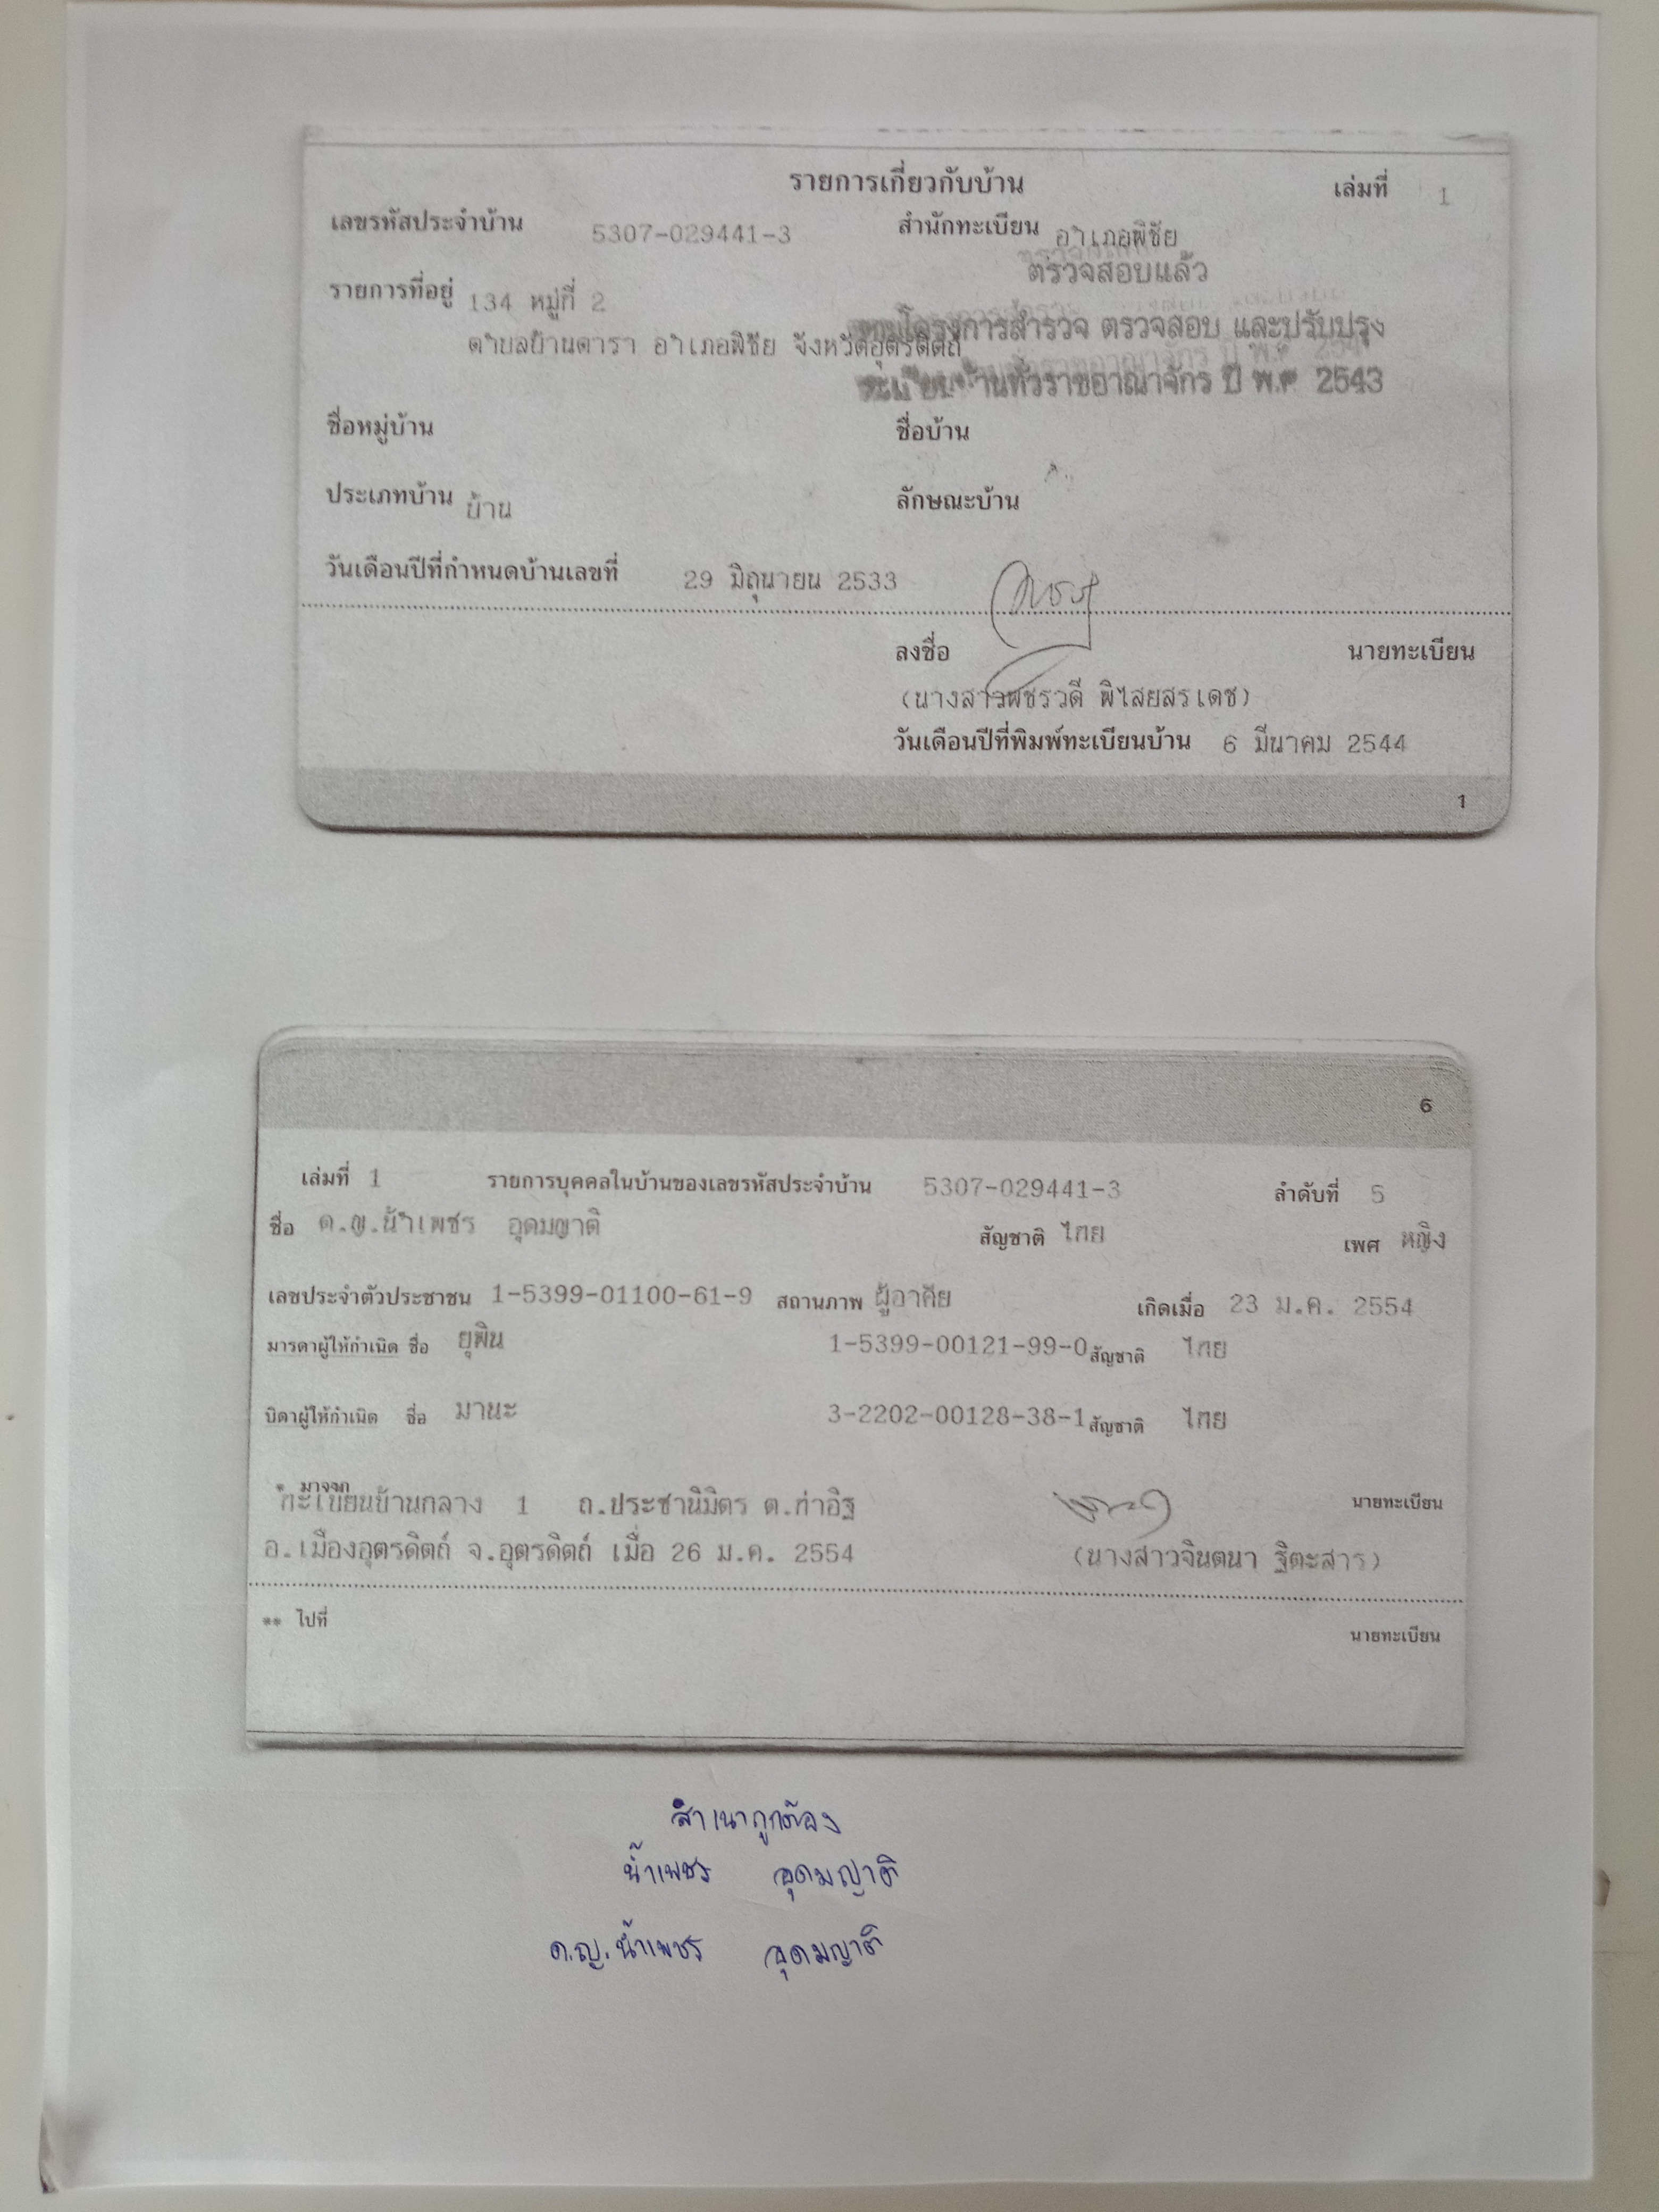 รายการเกี่ยวกับบ้าน เล่มที่ 1
เลขรหัสประจำบ้าน 5307-029441-3 สำนักทะเบียน อำเภอพิชัย
ตรวจสอบแล้ว
รายการที่อยู่ 134 หมู่ที่ 2
ตามโครงการสำรวจ ตรวจสอบ และปรับปรุง
ตำบลบ้านดารา อำเภอพิชัย จังหวัดอุตรดิตถ์
ทะเบียนบ้านทั่วราชอาณาจักร ปี พ.ศ 2543
ชื่อหมู่บ้าน ชื่อบ้าน
ประเภทบ้าน บ้าน ลักษณะบ้าน
วันเดือนปีที่กำหนดบ้านเลขที่ 29 มิถุนายน 2533
ลงชื่อ นายทะเบียน
(นางสาวพชรวดี พิไสยสรเดช)
วันเดือนปีที่พิมพ์ทะเบียนบ้าน 6 มีนาคม 2544
1
6
เล่มที่ 1 รายการบุคคลในบ้านของเลขรหัสประจำบ้าน 5307-029441-3 ลำดับที่ 5
ชื่อ ด.ญ.น้ำเพชร อุดมญาติ สัญชาติ ไทย เพศ หญิง
เลขประจำตัวประชาชน 1-5399-01100-61-9 สถานภาพ ผู้อาศัย เกิดเมื่อ 23 ม.ค. 2554
มารดาผู้ให้กำเนิด ชื่อ ยุพิน 1-5399-00121-99-0 สัญชาติ ไทย
บิดาผู้ให้กำเนิด ชื่อ มานะ 3-2202-00128-38-1 สัญชาติ ไทย
* มาจาก
ทะเบียนบ้านกลาง 1 ถ.ประชานิมิตร ต.ท่าอิฐ นายทะเบียน
อ.เมืองอุตรดิตถ์ จ.อุตรดิตถ์ เมื่อ 26 ม.ค. 2554 (นางสาวจินตนา ฐิตะสาร)
** ไปที่ นายทะเบียน
สำเนาถูกต้อง
น้ำเพชร อุดมญาติ
ด.ญ.น้ำเพชร อุดมญาติ